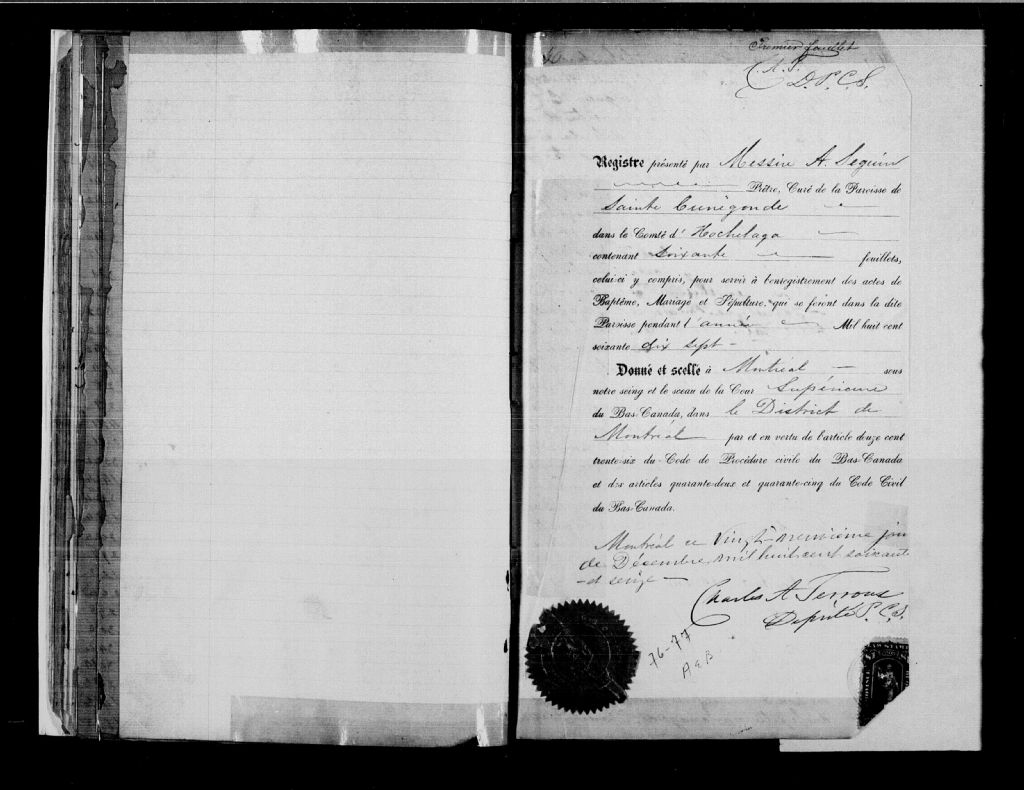 Premier feuillet
C. A. T.
D. P. C. S.
Registre présenté par Messire A. Seguin
Prêtre, Curé de la Paroisse de
Sainte Cunégonde
dans le Comté d'Hochelaga
contenant Soixante feuillets,
celui-ci y compris, pour servir à l'enregistrement des actes de
Baptême, Mariage et Sépulture, qui se feront dans la dite
Paroisse pendant l'année Mil huit cent
soixante dix sept
Donné et scellé à Montréal sous
notre seing et le sceau de la Cour Supérieure
du Bas-Canada, dans le District de
Montréal par et en vertu de l'article douze cent
trente-six du Code de Procédure civile du Bas-Canada
et des articles quarante-deux et quarante-cinq du Code Civil
du Bas-Canada.
Montréal ce vingt-neuvième jour
de Décembre, mil huit cent soixante
et seize
Charles A Terroux
Député P. C. S.
76-77
A & B